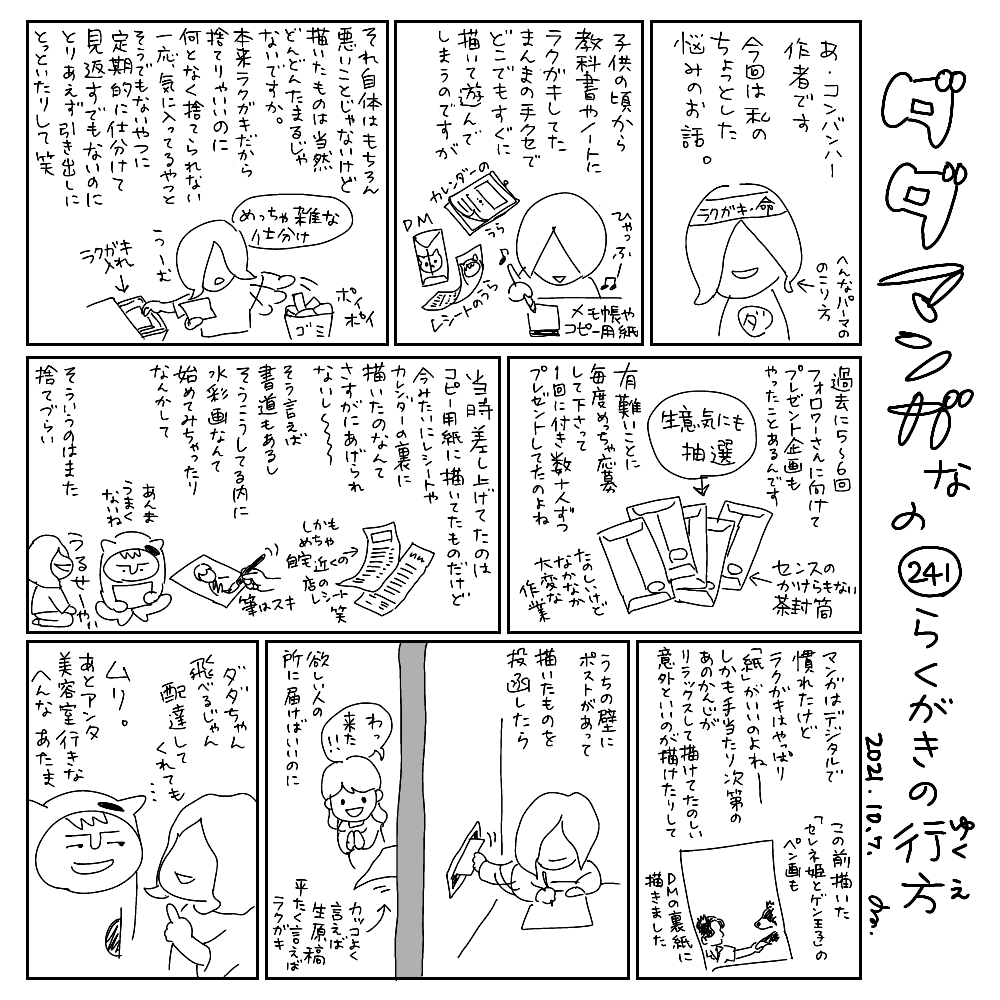 ダダマンガな
の
241
らくがきの行方
ゆくえ
2021.10.7.
あ・コンバンハー
作者です
今回は私の
ちょっとした
悩みのお話。
ラクガキ・命
ダ
へんなパーマの
のこり方
子供の頃から
教科書やノートに
ラクガキしてた
まんまの手クセで
どこでもすぐに
描いて遊んで
しまうのですが
ひゃっふー
カレンダーの
うら
DM
レシートのうら
メモ帳や
コピー用紙
それ自体はもちろん
悪いことじゃないけど
描いたものは当然
どんどんたまるじゃ
ないですか。
本来ラクガキだから
捨てりゃいいのに
何となく捨てられない
一応、気に入ってるやつと
そうでもないやつに
定期的に仕分けて
見返すでもないのに
とりあえず引き出しに
とっといたりして笑
めっちゃ雑な
仕分け
うーむ
ラクガキ
入れ
ポイ
ポイ
ゴミ
過去に5〜6回
フォロワーさんに向けて
プレゼント企画も
やったことあるんです
生意気にも
抽選
有難いことに
毎度めっちゃ応募
して下さって
1回に付き数十人ずつ
プレゼントしてたのよね
センスの
かけらもない
茶封筒
たのしいけど
なかなか
大変な
作業
当時差し上げてたのは
コピー用紙に描いてたものだけど
今みたいにレシートや
カレンダーの裏に
描いたのなんて
さすがにあげられ
ないし〜〜〜
そう言えば
書道もあるし
そうこうしてる内に
水彩画なんて
始めてみちゃったり
なんかして
そういうのはまた
捨てづらい
しかも
めちゃ
自宅近くの
店の
レシート
笑
筆はスキ
あんま
うまく
ないね
うるせーやい
マンガはデジタルで
慣れたけど
ラクガキはやっぱり
「紙」がいいのよねー
しかも手当たり次第の
あのかんじが
リラックスして描けてたのしい
意外といいのが描けたりして
この前描いた
「セレネ姫とゲン王子」の
ペン画も
DMの裏紙に
描きました
うちの壁に
ポストがあって
描いたものを
投函したら
わっ
来た
!!!
欲しい人の
所に届けばいいのに
カッコよく
言えば
生原稿
平たく言えば
ラクガキ
ダダちゃん
飛べるじゃん
配達して
くれても…
ムリ。
あとアンタ
美容室行きな
へんな あたま